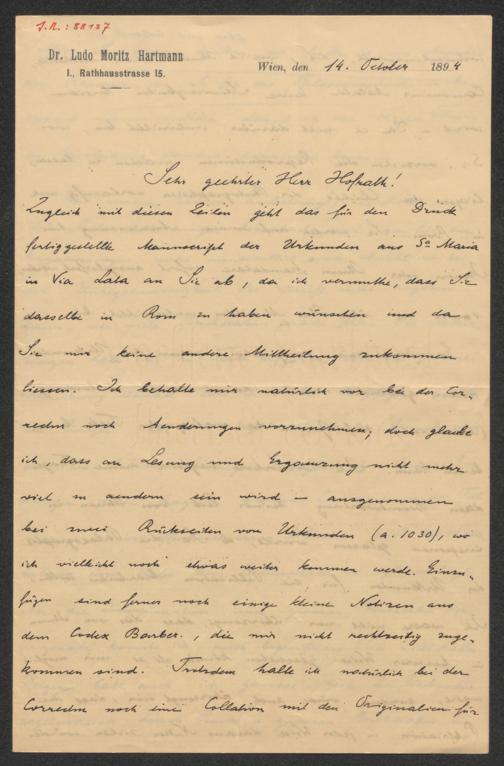 J.N.: 88137
Dr. Ludo Moritz Hartmann
I., Rathhausstrasse 15.
Wien, den 14. October 1894
Sehr geehrter Herr Hofrath!
Zugleich mit diesen Zeilen geht das für den Druck
fertiggestellte Manuscript der Urkunden aus Sa Maria
in Via Lata an Sie ab, da ich vermuthe, dass Sie
dasselbe in Rom zu haben wünschen und da
Sie mir keine andere Mittheilung zukommen
liessen. Ich behalte mir natürlich vor bei der Cor-
rectur noch Aenderungen vorzunehmen; doch glaube
ich, dass an Lesung und Ergaenzung nicht mehr
viel zu aendern sein wird – ausgenommen
bei zwei Rückseiten von Urkunden (a. 1030), wo
ich vielleicht noch etwas weiter kommen werde. Einzu-
fügen sind ferner noch einige kleine Notizen aus
dem Codex Barber., die mir nicht rechtzeitig zuge-
kommen sind. Trotzdem halte ich natürlich bei der
Correctur noch eine Collation mit den Originalien für